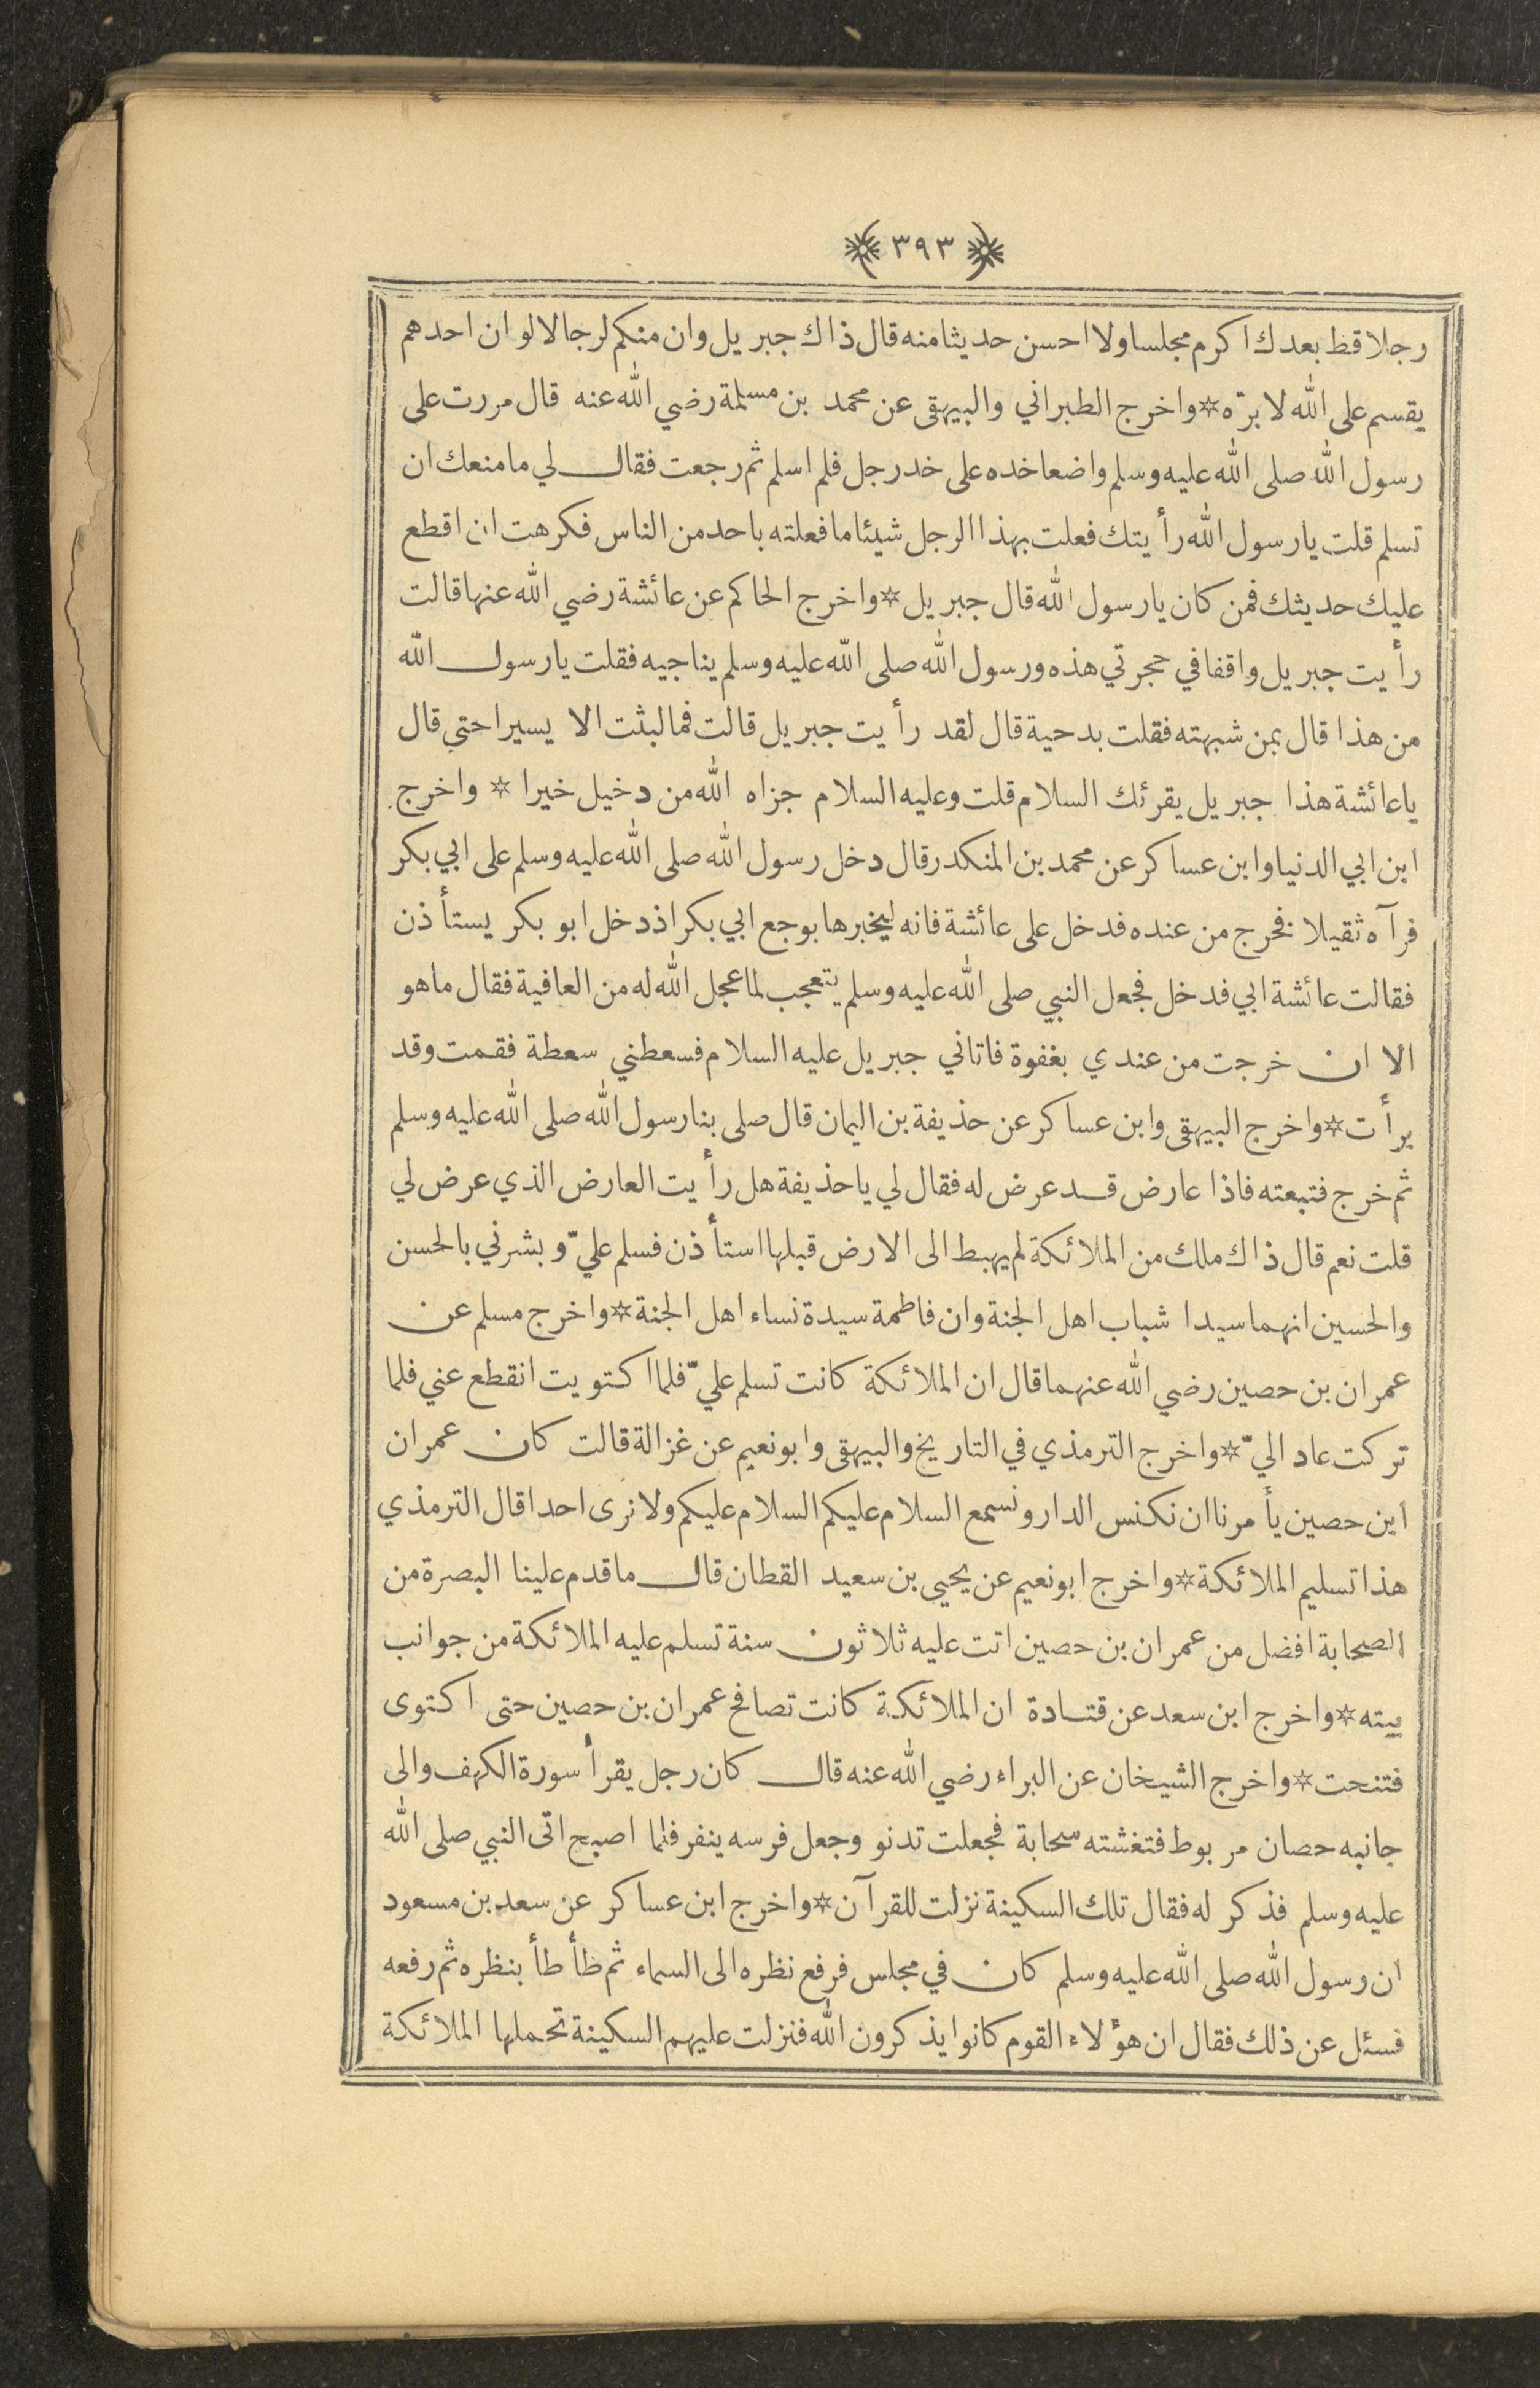 ٣٩٣
رجلا قط بعدك اكرم مجلسا ولا احسن حديثا منه قال ذاك جبريل وان منكم لرجالا لو ان احدهم
يقسم على الله لابرّه * واخرج الطبراني والبيهقى عن محمد بن مسلمة رضي الله عنه قال مررت على
رسول الله صلى الله عليه وسلم واضعا خده على خد رجل فلم اسلم ثم رجعت فقال لي ما منعك ان
تسلم قلت يا رسول الله رأيتك فعلت بهذا الرجل شيئا ما فعلته باحد من الناس فكرهت ان اقطع
عليك حديثك فمن كان يا رسول الله قال جبريل * واخرج الحاكم عن عائشة رضي الله عنها قالت
رأيت جبريل واقفا في حجرتي هذه ورسول الله صلى الله عليه وسلم يناجيه فقلت يا رسول الله
من هذا قال بمن شبهته فقلت بدحية قال لقد رأيت جبريل قالت فما لبثت الا يسيرا حتى قال
يا عائشة هذا جبريل يقرئك السلام قلت وعليه السلام جزاه الله من دخيل خيرا * واخرج
ابن ابي الدنيا وابن عساكر عن محمد بن المنكدر قال دخل رسول الله صلى الله عليه وسلم على ابي بكر
فرآه ثقيلا فخرج من عنده فدخل على عائشة فانه ليخبرها بوجع ابي بكر اذ دخل ابو بكر يستأذن
فقالت عائشة ابي فدخل فجعل النبي صلى الله عليه وسلم يتعجب لما عجل الله له من العافية فقال ما هو
الا ان خرجت من عندي بغفوة فاتاني جبريل عليه السلام فسعطني سعطة فقمت وقد
برأت * واخرج البيهقى وابن عساكر عن حذيفة بن اليمان قال صلى بنا رسول الله صلى الله عليه وسلم
ثم خرج فتبعته فاذا عارض قد عرض له فقال لي يا حذيفة هل رأيت العارض الذي عرض لي
قلت نعم قال ذاك ملك من الملائكة لم يهبط الى الارض قبلها استأذن فسلم عليّ وبشرني بالحسن
والحسين انهما سيدا شباب اهل الجنة وان فاطمة سيدة نساء اهل الجنة * واخرج مسلم عن
عمران بن حصين رضي الله عنهما قال ان الملائكة كانت تسلم عليّ فلما اكتويت انقطع عني فلما
تركت عاد اليّ * واخرج الترمذي في التاريخ والبيهقى وابو نعيم عن غزالة قالت كان عمران
ابن حصين يأمرنا ان نكنس الدار ونسمع السلام عليكم السلام عليكم ولا نرى احدا قال الترمذي
هذا تسليم الملائكة * واخرج ابو نعيم عن يحيى بن سعيد القطان قال ما قدم علينا البصرة من
الصحابة افضل من عمران بن حصين اتت عليه ثلاثون سنة تسلم عليه الملائكة من جوانب
بيته * واخرج ابن سعد عن قتادة ان الملائكة كانت تصافح عمران بن حصين حتى اكتوى
فتنحت * واخرج الشيخان عن البراء رضي الله عنه قال كان رجل يقرأ سورة الكهف والى
جانبه حصان مربوط فتغشته سحابة فجعلت تدنو وجعل فرسه ينفر فلما اصبح اتى النبي صلى الله
عليه وسلم فذكر له فقال تلك السكينة نزلت للقرآن * واخرج ابن عساكر عن سعد بن مسعود
ان رسول الله صلى الله عليه وسلم كان في مجلس فرفع نظره الى السماء ثم طأطأ بنظره ثم رفعه
فسئل عن ذلك فقال ان هؤلاء القوم كانوا يذكرون الله فنزلت عليهم السكينة تحملها الملائكة